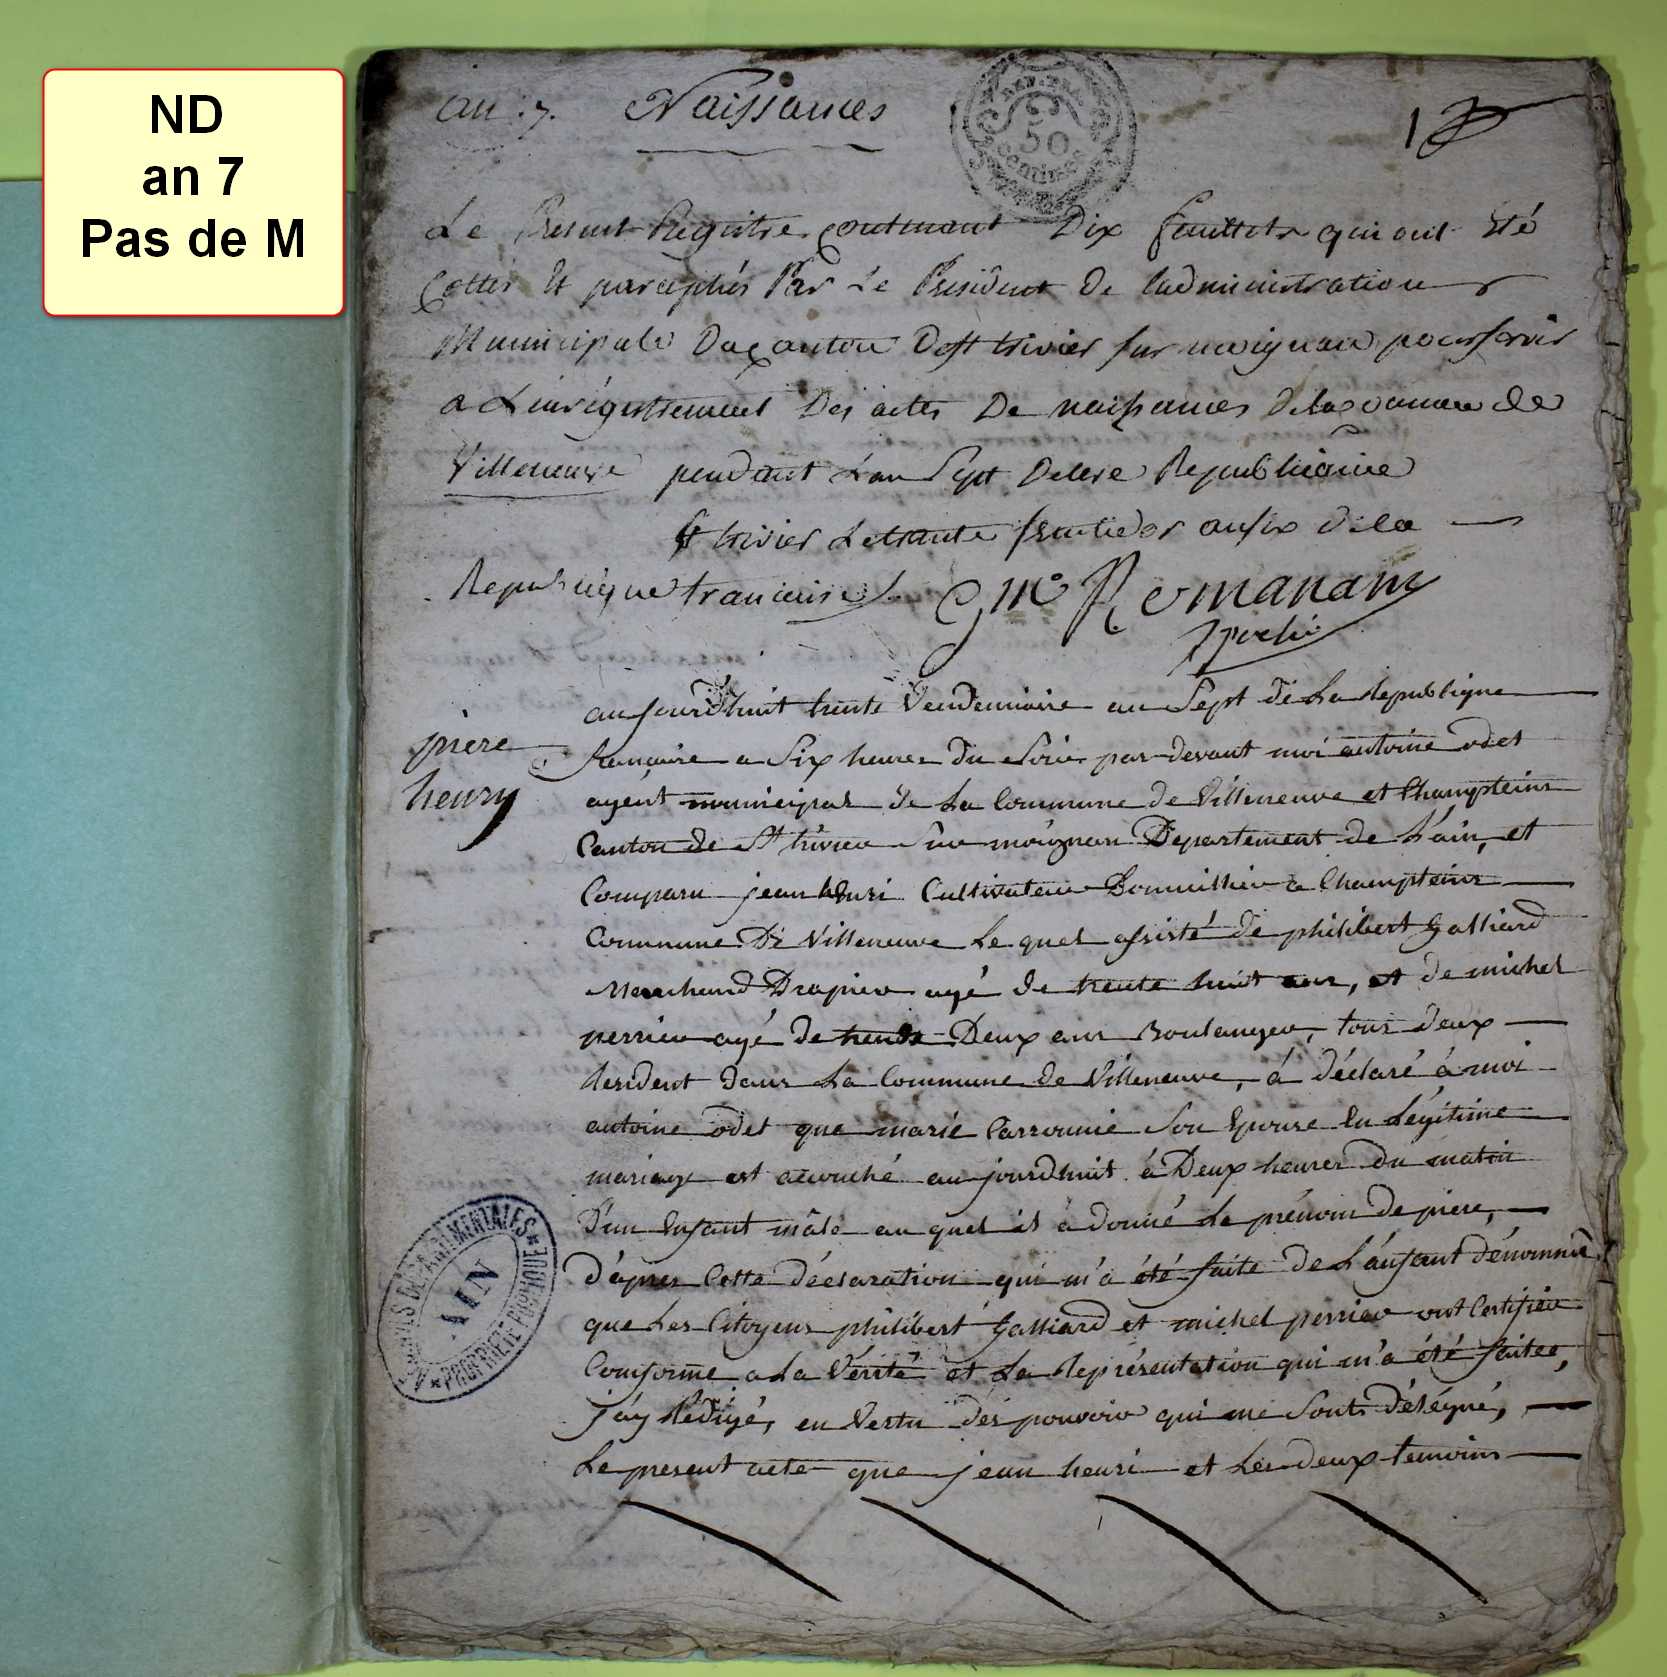 ND
an 7
Pas de M
an 7. Naissances
REP. FRA.
50
centimes
1
Le Present Registre contenant Dix feuillets qui ont été
Cottés Et paraphés Par Le Président De Ladministration
Municipale Du Canton De St trivier sur moignan pour servir
a Linrégistrement Des actes De naissances Dela Comune de
Villeneuve pendant Lan Sept Delere Republicaine
St trivier Letrante fructidor an six Dela
Republique francaise /. Romanans
pierre
henry
aujourdhuit trente Vendemiaire an Sept de La Republique
francaire a Six heures Du Soir par devant moi antoine odet
agent municipal de La Commune de Villeneuve et Champteins
Canton de St trivier Sur moignan Departement de L'ain, et
Comparu jean henri Cultivateur Domicillier a Champteins
Commune De Villeneuve Le quel assisté de philibert Galliard
Marchand Drapier agé de trente huit ans, et de michel
perrier agé de trente Deux ans Boulanger, tous deux
Resident dans La Commune de Villeneuve, à déclaré à moi
antoine odet que marie Carronnié Son Epouse En Légitime
mariage est acouché aujourdhuit à Deux heures du matin
D'un Enfant mâle au quel il à donné Le prénom De piere,
d'apres Cette déclaration qui m'a été faite de L'anfant dénommé
que Les Citoyens philibert Galliard et michel perrier ont Certifier
Conforme a La Vérité et La Représentation qui m'a été faitee,
j'ay Rédigé, en Vertu des pouvoir qui me Sonts délégué,
Le present acte que jean henri et Les deux temoins
ARCHIVES DEPARTEMENTALES
AIN
* PROPRIETE PUBLIQUE *